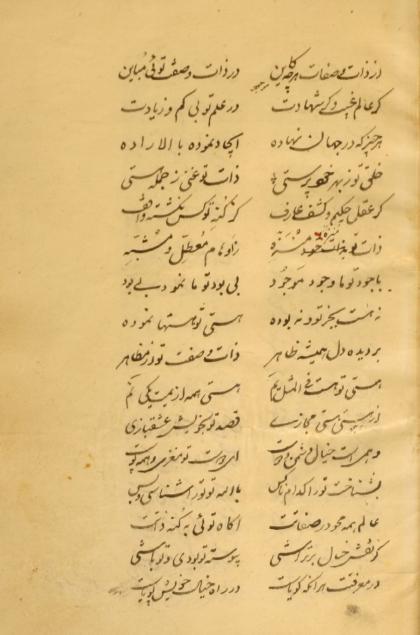 از ذات و صفات هرچه در ذات و صفت توئی مباین
گر عالم غیب و گر شهادت در علم تو بی کم و زیادت
هر چیز که در جهان نهاده ایجاد نموده بالاراده
خلقی تو ز بهر خود پرستی ذات تو غنی ز جمله هستی
گر عقل حکیم و کشف عارف کز کنه تو کس نگشته واقف
ذات تو خود منزه ز اوهام معطل و مشبه
با جود تو ما وجود موجود بی بود تو ما نمود بی بود
نه هست بجز تو و نه بوده هستی تو هستها نموده
بر دیده دل همیشه ظاهر ذات و صفت تو در مظاهر
هستی تو هست فی المثل یم هستی همه از میت یکی نم
از هستی مجازی قصد تو بخویش عشقبازی
وهم است خیال و تو مغزی و همه پوست
نشناخت تو را کدام ناکس بالله تو تو را شناسی و بس
عالم همه در صفاتت آگاه توئی به کنه ذاتت
کز نقش خیال برتر استی پیوسته تو بودی و تو باشی
در معرفتت هر آنکه گویاست در راه خیال خویش پویاست